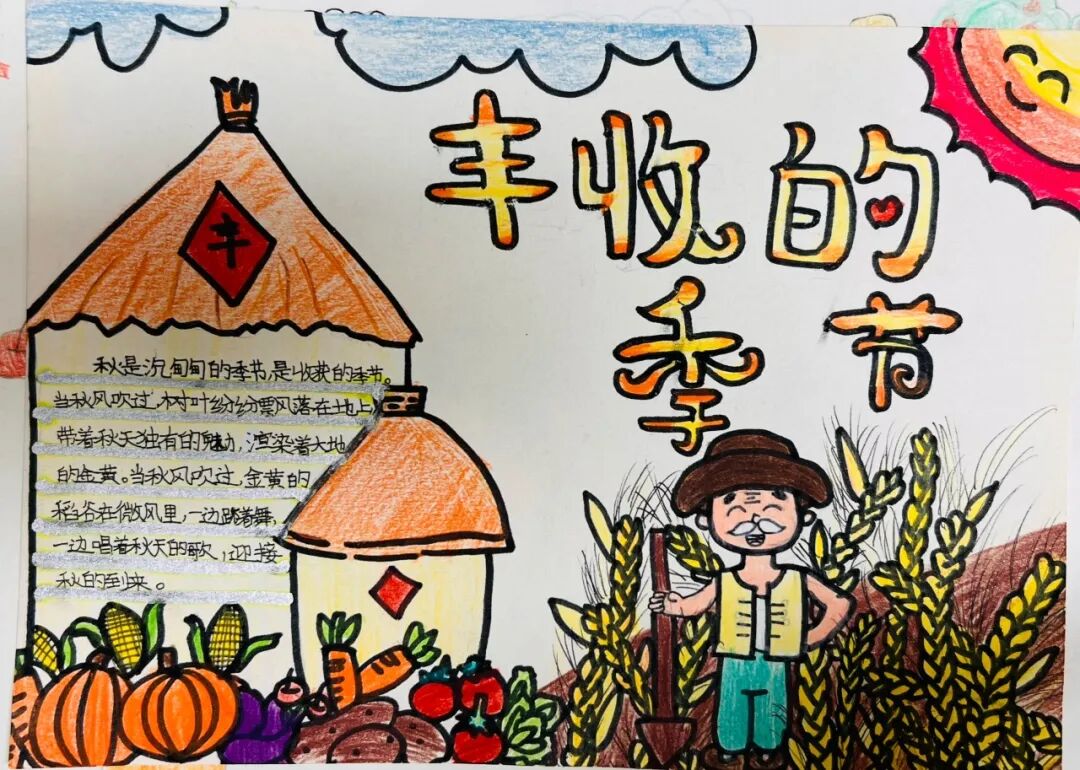 丰收的
季节
丰
秋是沉甸甸的季节,是收获的季节。
当秋风吹过,树叶纷纷飘落在地上,
带着秋天独有的魅力,渲染着大地
的金黄。当秋风吹过,金黄的
稻谷在微风里,一边跳着舞,
一边唱着秋天的歌,迎接
秋的到来。